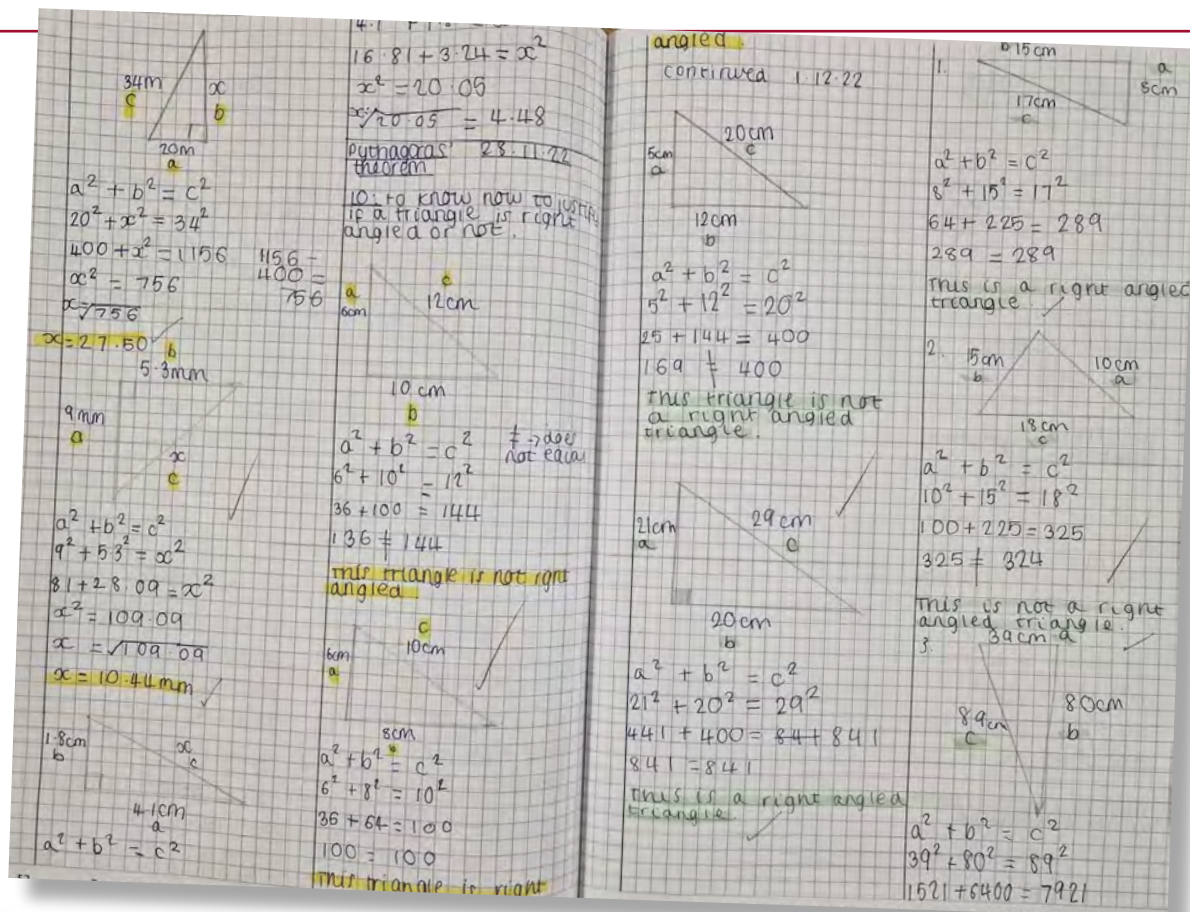 34m
c
x
b
20m
a
a² + b² = c²
20² + x² = 34²
400 + x² = 1156
1156 -
400 =
756
x² = 756
x=√756
x=27.50
b
5.3mm
9mm
a
x
c
a² + b² = c²
9² + 5.3² = x²
81 + 28.09 = x²
x² = 109.09
x = √109.09
x = 10.44mm
1.8cm
b
x
c
4.1cm
a
a² + b² = c²
16.81 + 3.24 = x²
x² = 20.05
√20.05 = 4.48
Pythagoras' 28.11.22
theorem
to know how to justify
if a triangle is right
angled or not.
a
6cm
c
12cm
10cm
b
a² + b² = c²
≠ → does
not equal
6² + 10² = 12²
36 + 100 = 144
136 ≠ 144
This triangle is not right
angled.
c
10cm
6cm
a
8cm
b
a² + b² = c²
6² + 8² = 10²
36 + 64 = 100
100 = 100
This triangle is right
angled.
continued 1.12.22
5cm
a
20cm
c
12cm
b
a² + b² = c²
5² + 12² = 20²
25 + 144 = 400
169 ≠ 400
This triangle is not
a right angled
triangle.
21cm
a
29cm
c
20cm
b
a² + b² = c²
21² + 20² = 29²
441 + 400 = 841
841 = 841
This is a right angled
triangle.
1.
b 15cm
a
8cm
17cm
c
a² + b² = c²
8² + 15² = 17²
64 + 225 = 289
289 = 289
This is a right angled
triangle.
2.
15cm
b
10cm
a
18cm
c
a² + b² = c²
10² + 15² = 18²
100 + 225 = 325
325 ≠ 324
This is not a right
angled triangle.
3.
39cm a
89cm
c
80cm
b
a² + b² = c²
39² + 80² = 89²
1521 + 6400 = 7921